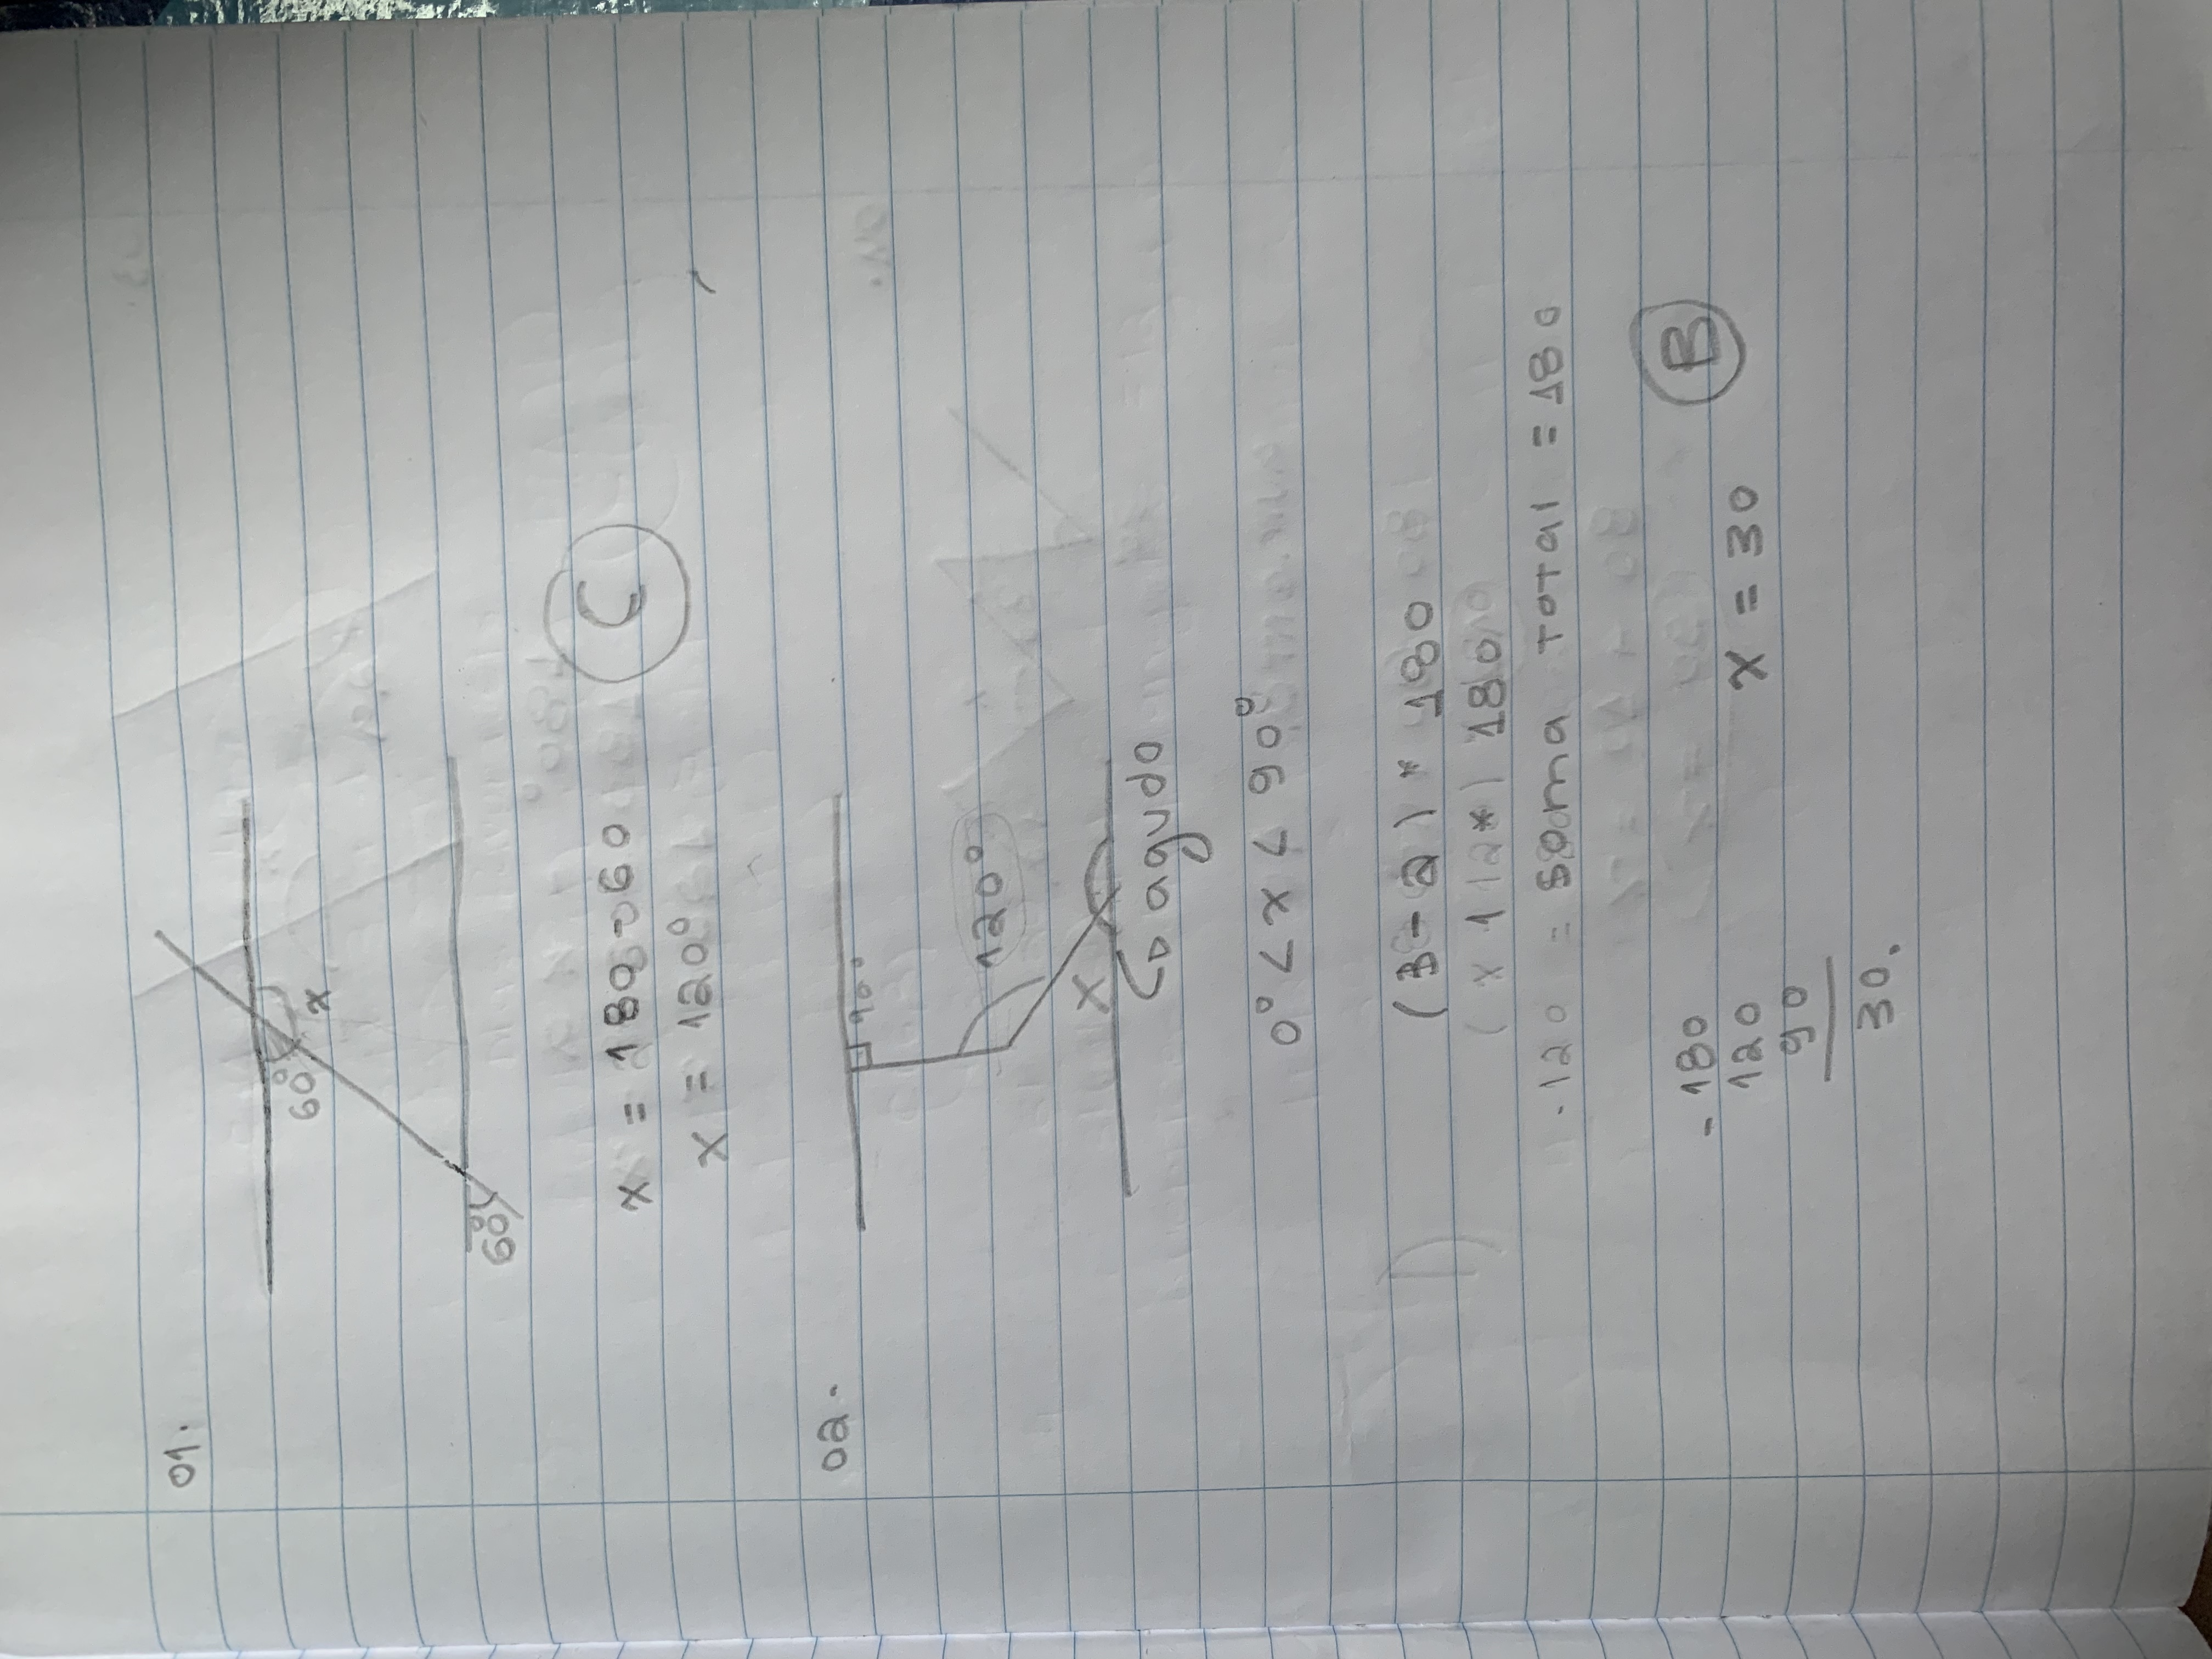 01.
60°
x
60°
x = 180 - 60
C
x = 120°
02.
90°
120°
x
agudo
0° < x < 90°
(3 - 2) * 180
180
-120 = soma total = 180
- 180
120
90
30.
x = 30
B